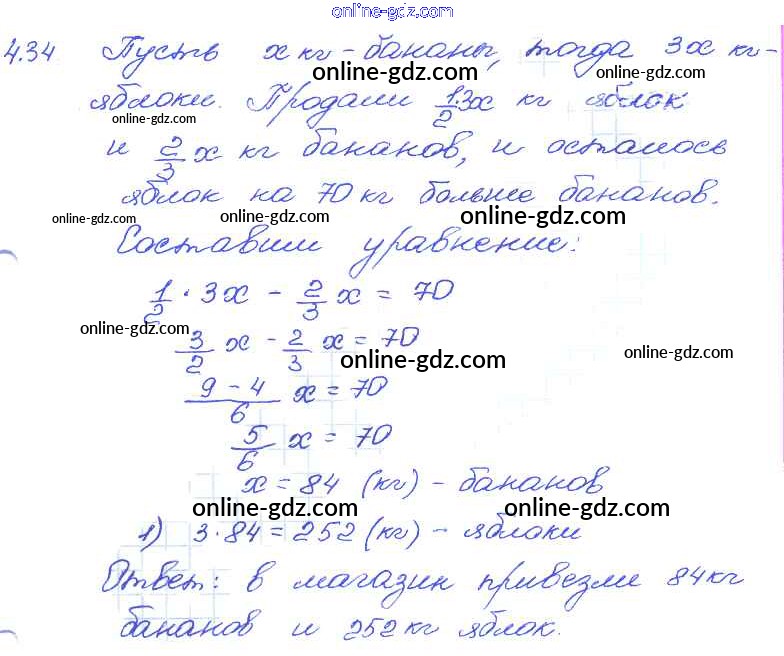 online-gdz.com
4.34 Пусть x кг - бананы, тогда 3x кг -
online-gdz.com
яблоки. Продали 1/2·3x кг яблок
online-gdz.com online-gdz.com
и 2/3 x кг бананов, и осталось
яблок на 70 кг больше бананов.
online-gdz.com online-gdz.com online-gdz.com
Составим уравнение:
1/2 · 3x - 2/3 x = 70
online-gdz.com
3/2 x - 2/3 x = 70
online-gdz.com online-gdz.com
(9 - 4)/6 x = 70
5/6 x = 70
x = 84 (кг) - бананов
online-gdz.com online-gdz.com
1) 3·84 = 252 (кг) - яблоки
Ответ: в магазин привезли 84 кг
бананов и 252 кг яблок.
online-gdz.com online-gdz.com